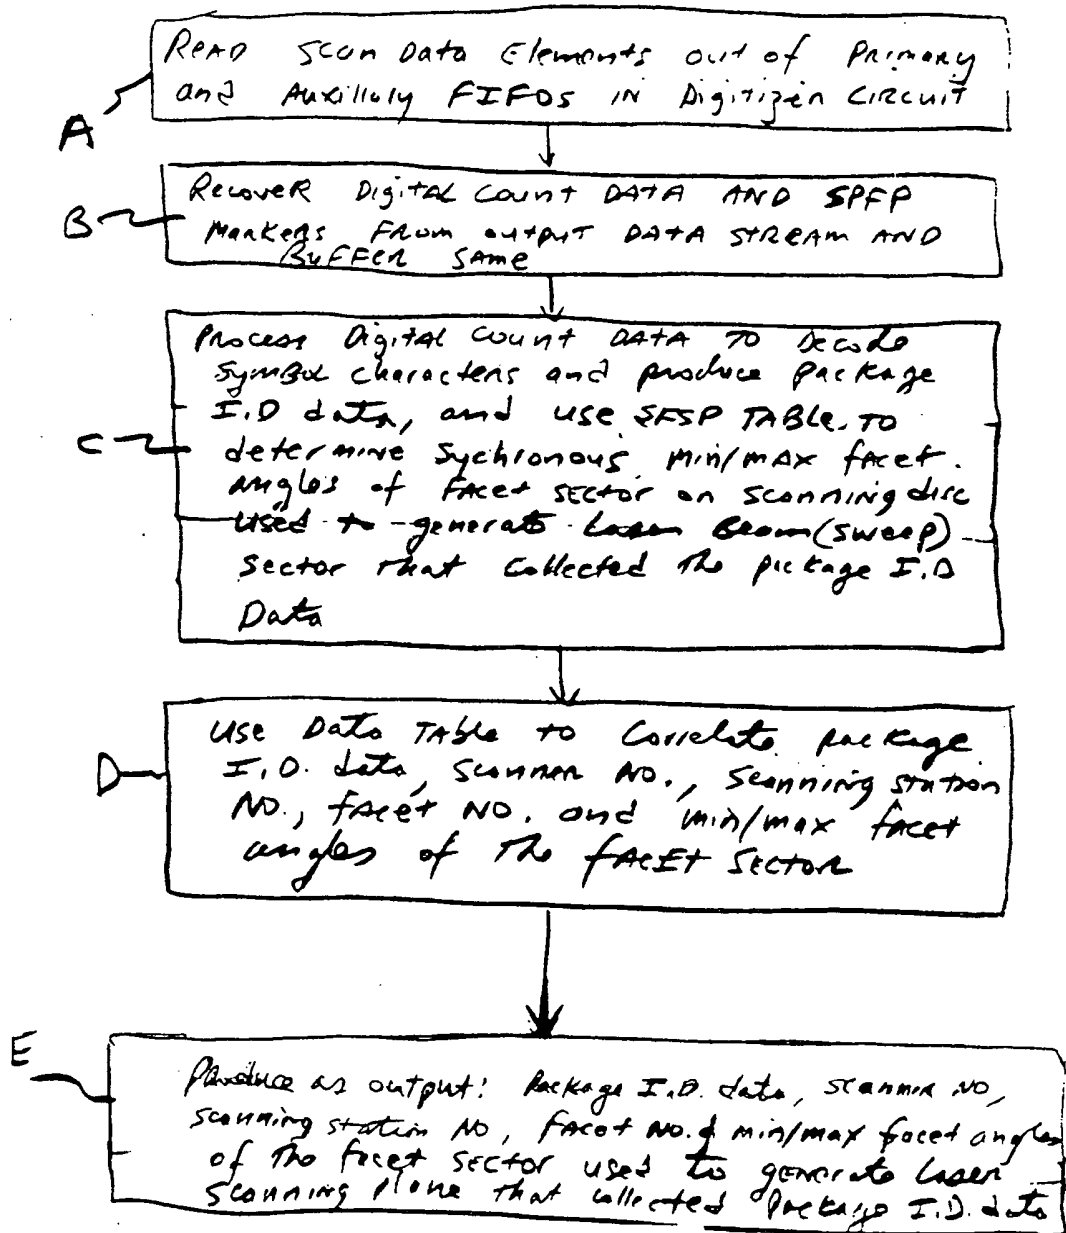 READ Scan Data Elements out of Primary
and Auxilluly FIFOs IN Digitizen CIRCUIT
A
Recover Digital Count DATA AND SPFP
Mankers From output DATA STREAM AND
Buffer Same
B
Process Digital Count DATA TO Decode
Symbol characters and produce package
I.D data, and use SFSP TABLE TO
determine Sychronous Min/max facet
angles of Facet Sector on scanning disc
used to generate Laser Beam (sweep)
Sector that Collected The package I.D
Data
C
Use Data Table to Correlate package
I.D. data, scanner NO., scanning station
NO., facet NO. and min/max facet
angles of The facet Sector
D
E
Produce as output: Package I.D. data, scanner NO,
scanning station NO, facet NO. & min/max facet angles
of The facet Sector used to generate Laser
Scanning Plane that collected Package I.D. data